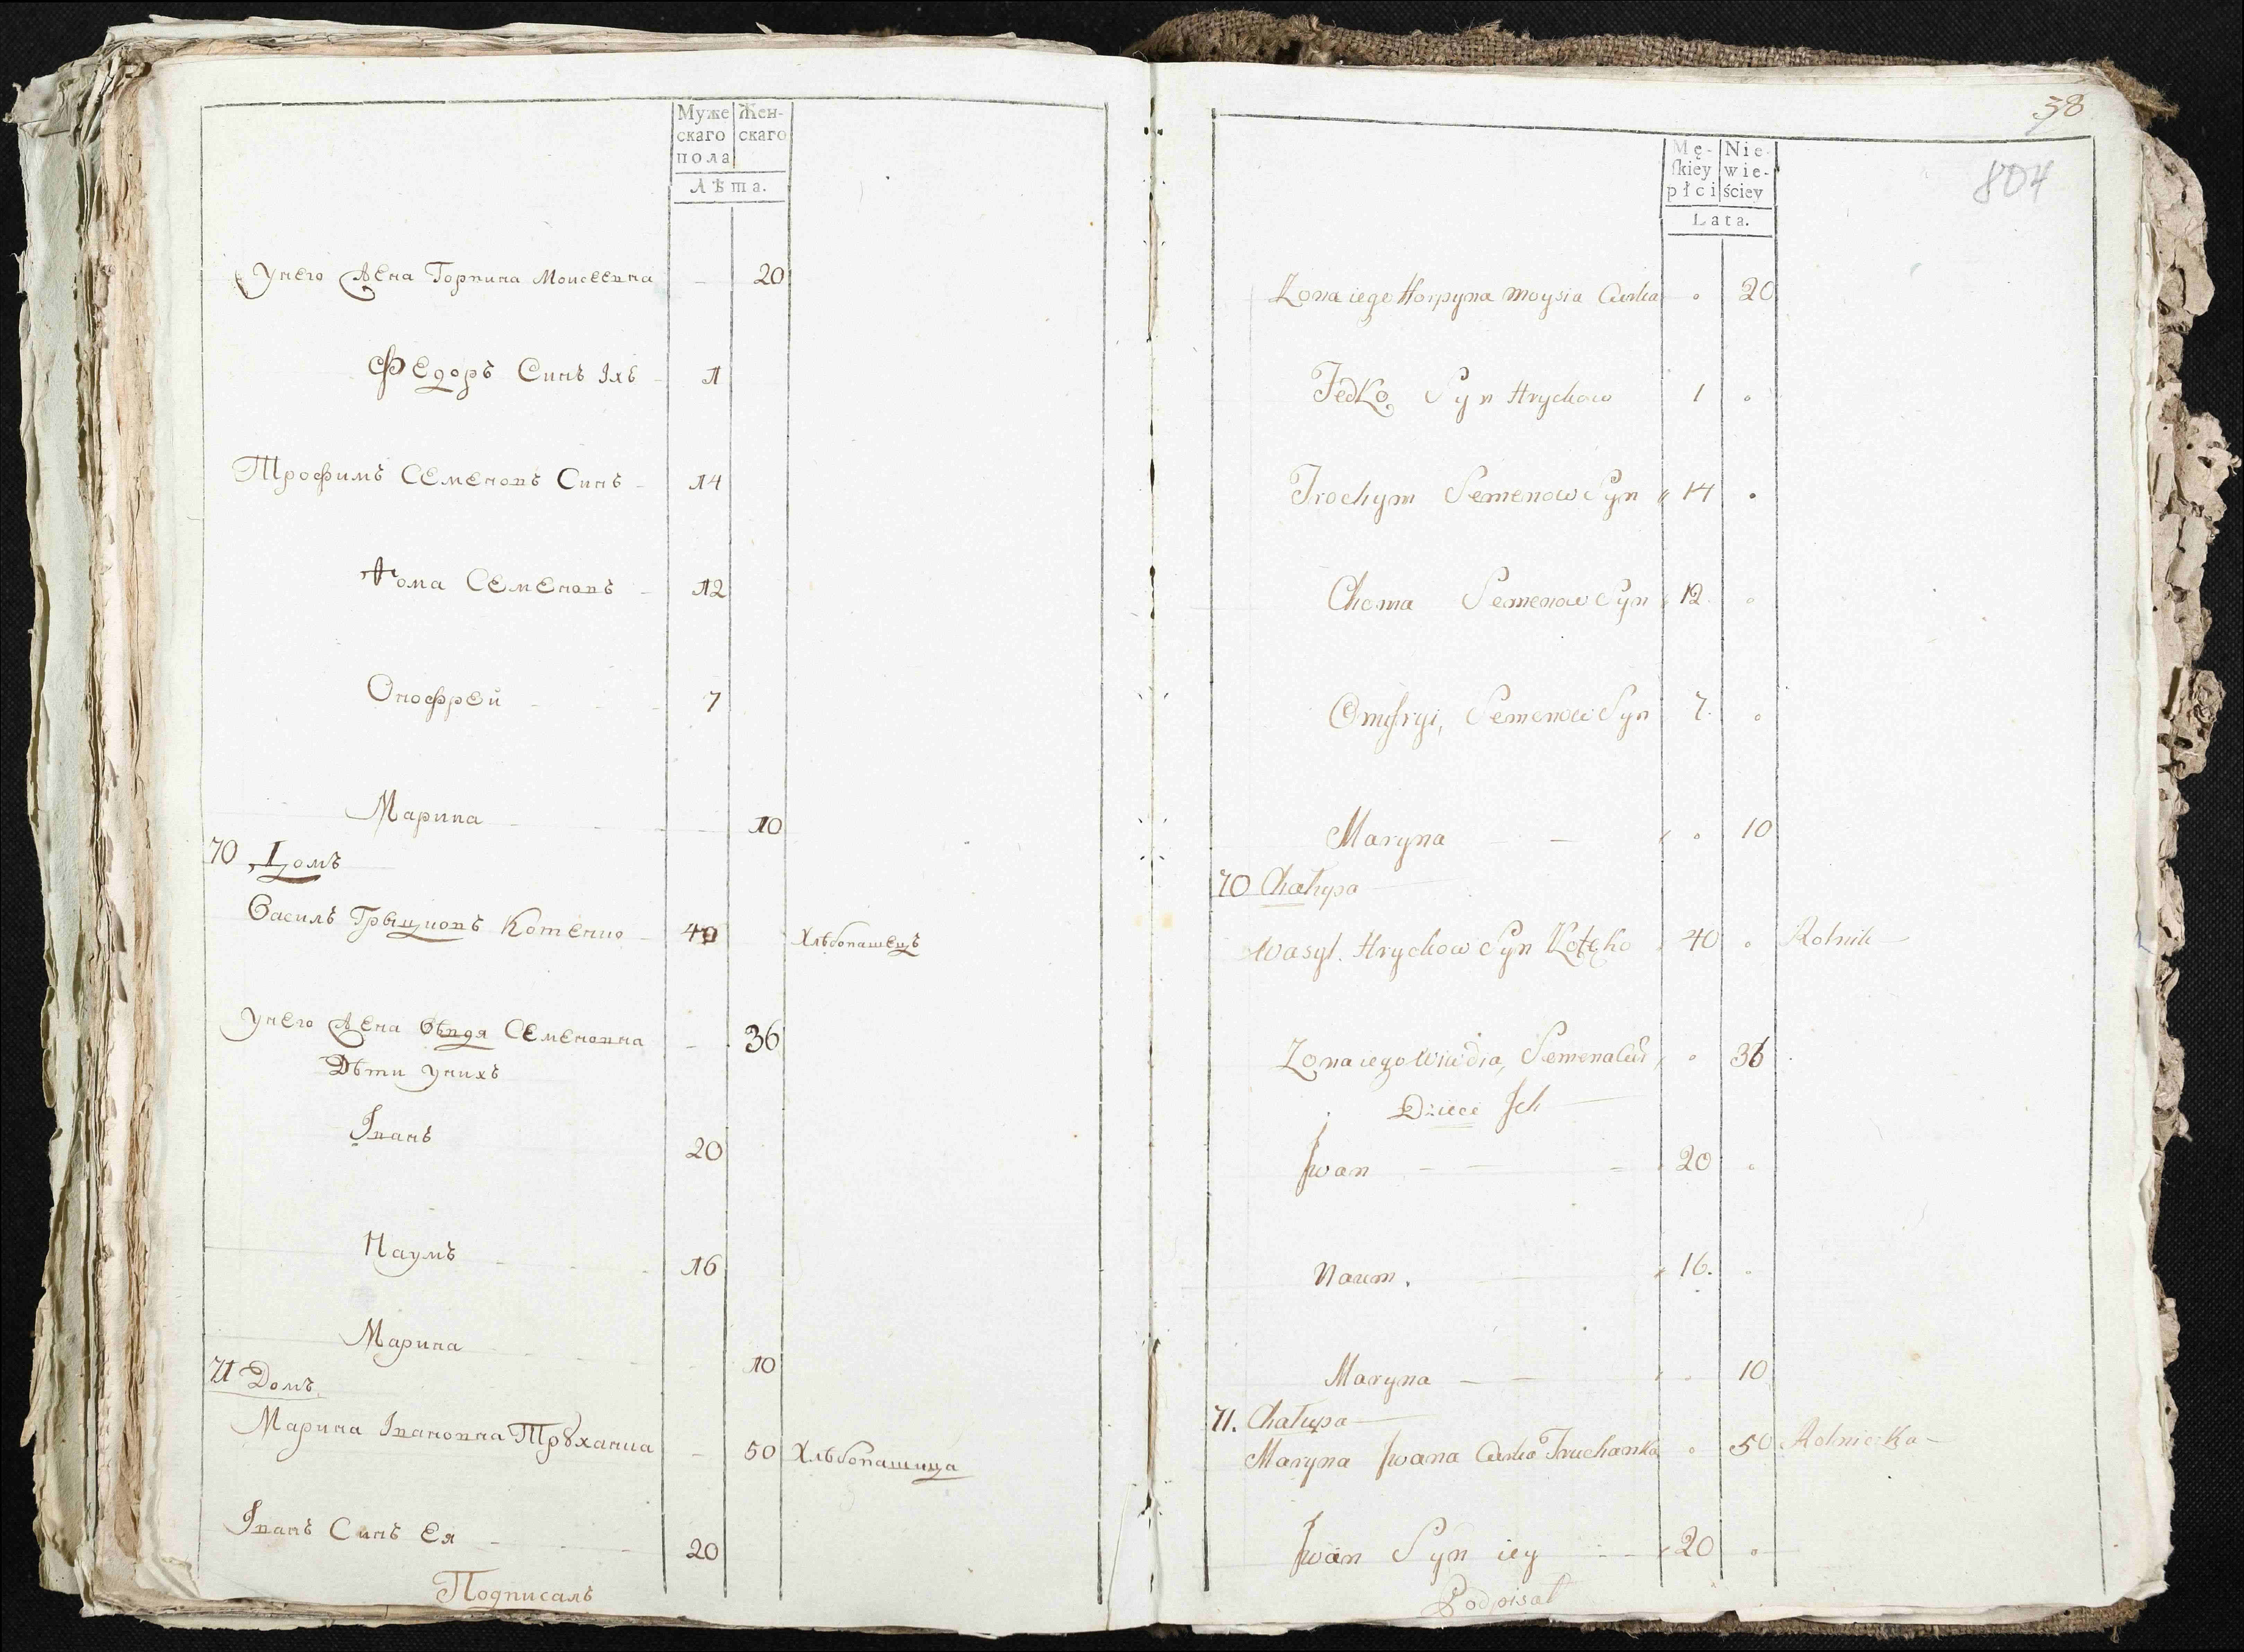 Муже
скаго
пола
Жен-
скаго
Лѣта.
Унего Жена Горпина Моисеевна - 20
Федоръ Синъ Іхъ - 1
Трофимъ Семеновъ Синъ - 14
Ѳома Семеновъ - 12
Онофрей - - 7
Марина - - 10
70 Домъ
Василъ Грыцковъ Котенко - 40 Хлѣбопашецъ
Унего Жена Явдя Семеновна - 36
Дѣти Унихъ
Іванъ 20
Наумъ - - 16
Марина - - 10
71 Домъ
Марина Івановна Трꙋханка - 50 Хлѣбопашица
Іванъ Синъ Ея - - 20
Подписалъ
38
804
Mę-
ſkiey
płci
Nie-
wie-
ściey
Lata.
Zona iego Horpyna Moysia Curka 20
Fedko Syn Hryckow 1
Trochym Semenow Syn 14
Choma Semenow Syn 12.
Onufryi, Semenow Syn 7.
Maryna - - 10
70 Chałupa
Wasyl. Hryckow Syn Kotęko 40 Rolnik
Zona iego Wiwdia, Semena Cur 36
Dzieci Jch
Jwan - - 20
Naum. 16.
Maryna - - 10
71. Chałupa
Maryna Jwana Curka Truchanka 50 Rolniczka
Jwan Syn iey - 20
Podpisał